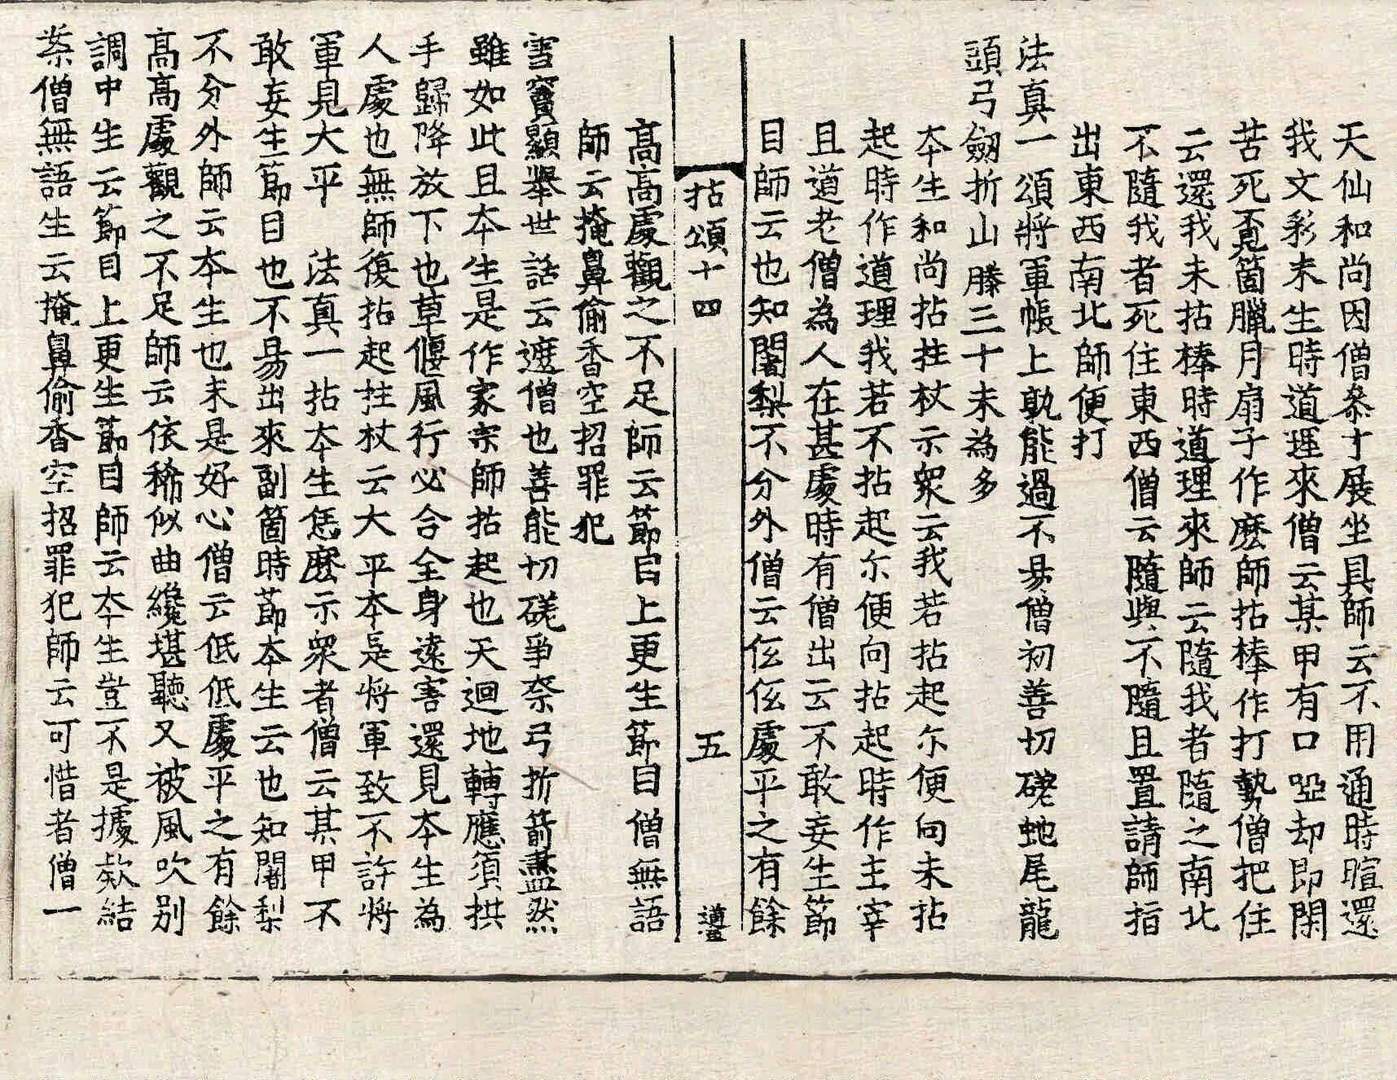 天仙和尚因僧叅才展坐具師云不用通時暄還
我文彩未生時道理來僧云某甲有口啞却即閑
苦死覔箇臘月扇子作麽師拈棒作打勢僧把住
云還我未拈棒時道理來師云隨我者隨之南北
不隨我者死住東西僧云隨與不隨且置請師指
出東西南北師便打
法真一頌將軍帳上孰能過不易僧初善切磋虵尾龍
頭弓劒折山䕨三十未為多
夲生和尚拈拄杖示衆云我若拈起尔便向未拈
起時作道理我若不拈起尔便向拈起時作主宰
且道老僧為人在甚處時有僧出云不敢妄生節
目師云也知闍梨不分外僧云低低處平之有餘
拈頌十四
五
遵
高高處觀之不足師云節目上更生節目僧無語
師云掩鼻偷香空招罪犯
雪竇顯舉世話云遮僧也善能切磋爭奈弓折箭盡然
雖如此且夲生是作家宗師拈起也天迴地轉應須拱
手歸降放下也草偃風行必合全身遠害還見夲生為
人處也無師復拈起拄杖云大平夲是將軍致不許將
軍見大平　法真一拈夲生恁麽示衆者僧云某甲不
敢妄生節目也不易出來副箇時節夲生云也知闍梨
不分外師云夲生也未是好心僧云低低處平之有餘
高高處觀之不足師云依稀似曲纔堪聽又被風吹別
調中生云節目上更生節目師云夲生豈不是據欵結
案僧無語生云掩鼻偷香空招罪犯師云可惜者僧一